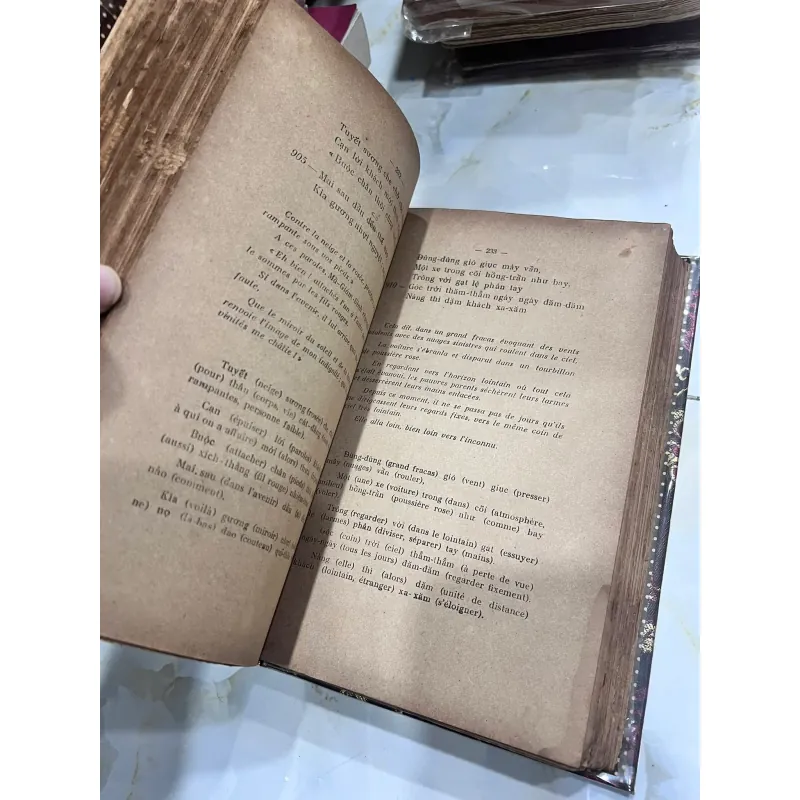 Tuyết sương che chở
Cạn lời khách mới
« Buộc chân
905 — Mai sau dầu
Kìa gương nhựt nguyệt
Contre la neige et la rosée,
rampante sous vos pieds.
A ces paroles, Ma-Giám
« Eh bien ! attachés l'un à
le sommes par les fils rouges,
Si dans l'avenir, il lui arrive
faute,
Que le miroir du soleil et de la
renvoie l'image de mon
vinités me châtie ! »
Tuyết (neige) sương (rosée)
(pour) thân (corps, vie) cát-đằng
rampantes, personne faible).
Cạn (épuiser) lời (paroles)
à qui on a affaire) mới (alors)
Buộc (attacher) chân (pieds)
(aussi) xích-thằng (fil rouge)
Mai sau (dans l'avenir) dầu
nào (comment).
Kìa (voilà) gương (miroir)
ne) nọ (là-bas) dao (couteau)
— 233 —
Đùng-đùng gió giục mây vần,
Một xe trong cõi hồng-trần như bay,
Trông vời gạt lệ phân tay
Góc trời thăm-thẳm ngày ngày đăm-đăm
Nàng thì dặm khách xa-xăm
Cela dit, dans un grand fracas évoquant des vents
avec des nuages sinistres qui roulent dans le ciel,
La voiture s'ébranla et disparut dans un tourbillon
poussière rose.
En regardant vers l'horizon lointain où tout cela
évanoui, les pauvres parents séchèrent leurs larmes
desserrèrent leurs mains enlacées.
Depuis ce moment, il ne se passa pas de jours qu'ils
leurs regards fixés, vers le même coin de
ciel très lointain.
Elle alla loin, bien loin vers l'inconnu.
Đùng-đùng (grand fracas) gió (vent) giục (presser)
mây (nuages) vần (rouler),
Một (une) xe (voiture) trong (dans) cõi (atmosphère,
milieu) hồng-trần (poussière rose) như (comme) bay
(voler)
Trông (regarder) vời (dans le lointain) gạt (essuyer)
(larmes) phân (diviser, séparer) tay (mains)
Góc (coin) trời (ciel) thăm-thẳm (à perte de vue)
ngày-ngày (tous les jours) đăm-đăm (regarder fixement).
Nàng (elle) thì (alors) dặm (unité de distance)
khách (lointain, étranger) xa-xăm (s'éloigner).